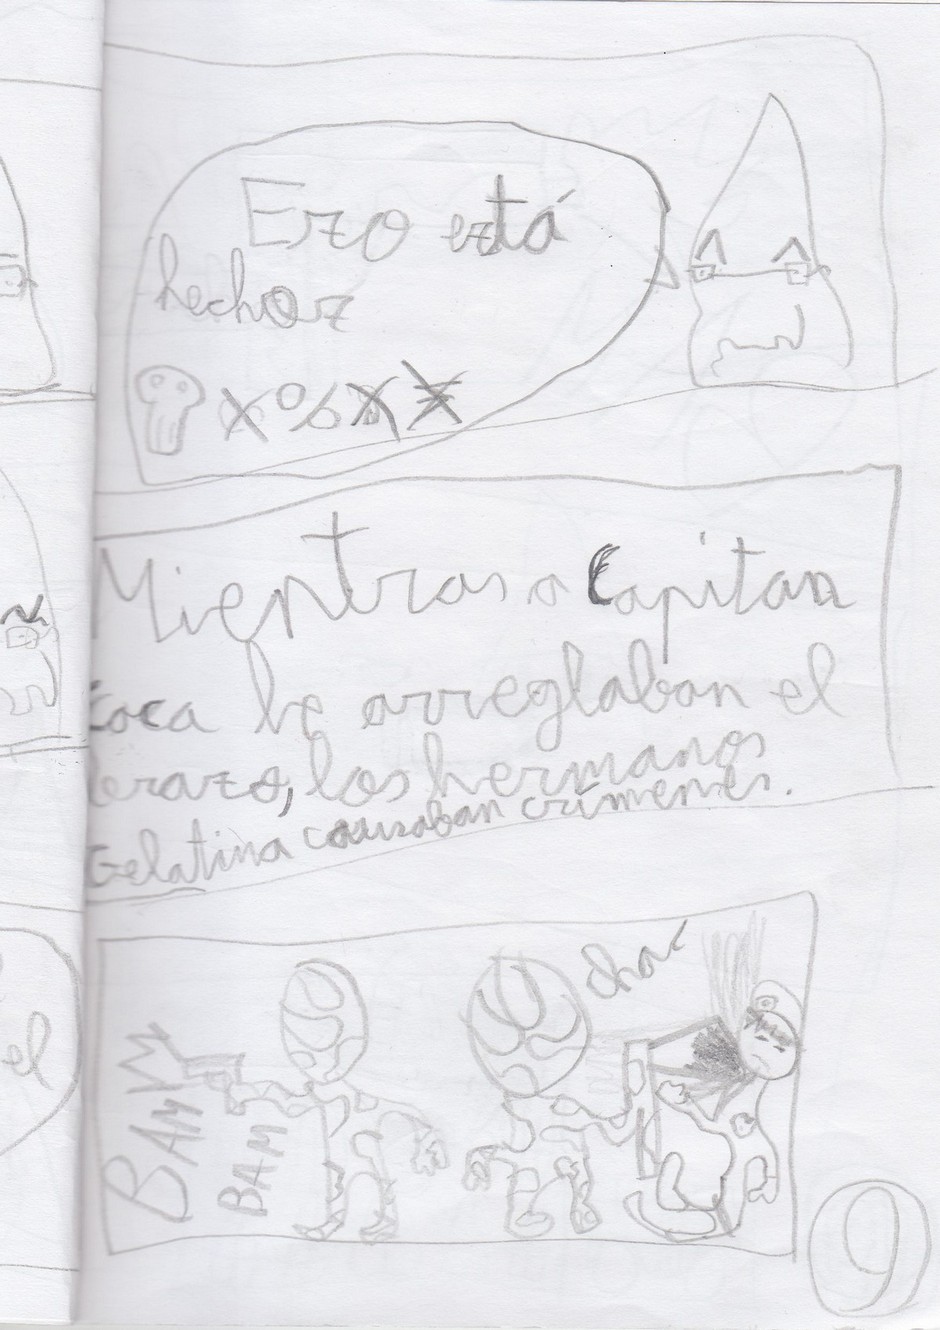 Ezo eztá
hechoz
X%XX
Mientras a Capitan
Coca le arreglaban el
brazo, los hermanos
Gelatina causaban crímenes.
chac
BAM
BAM
el
9